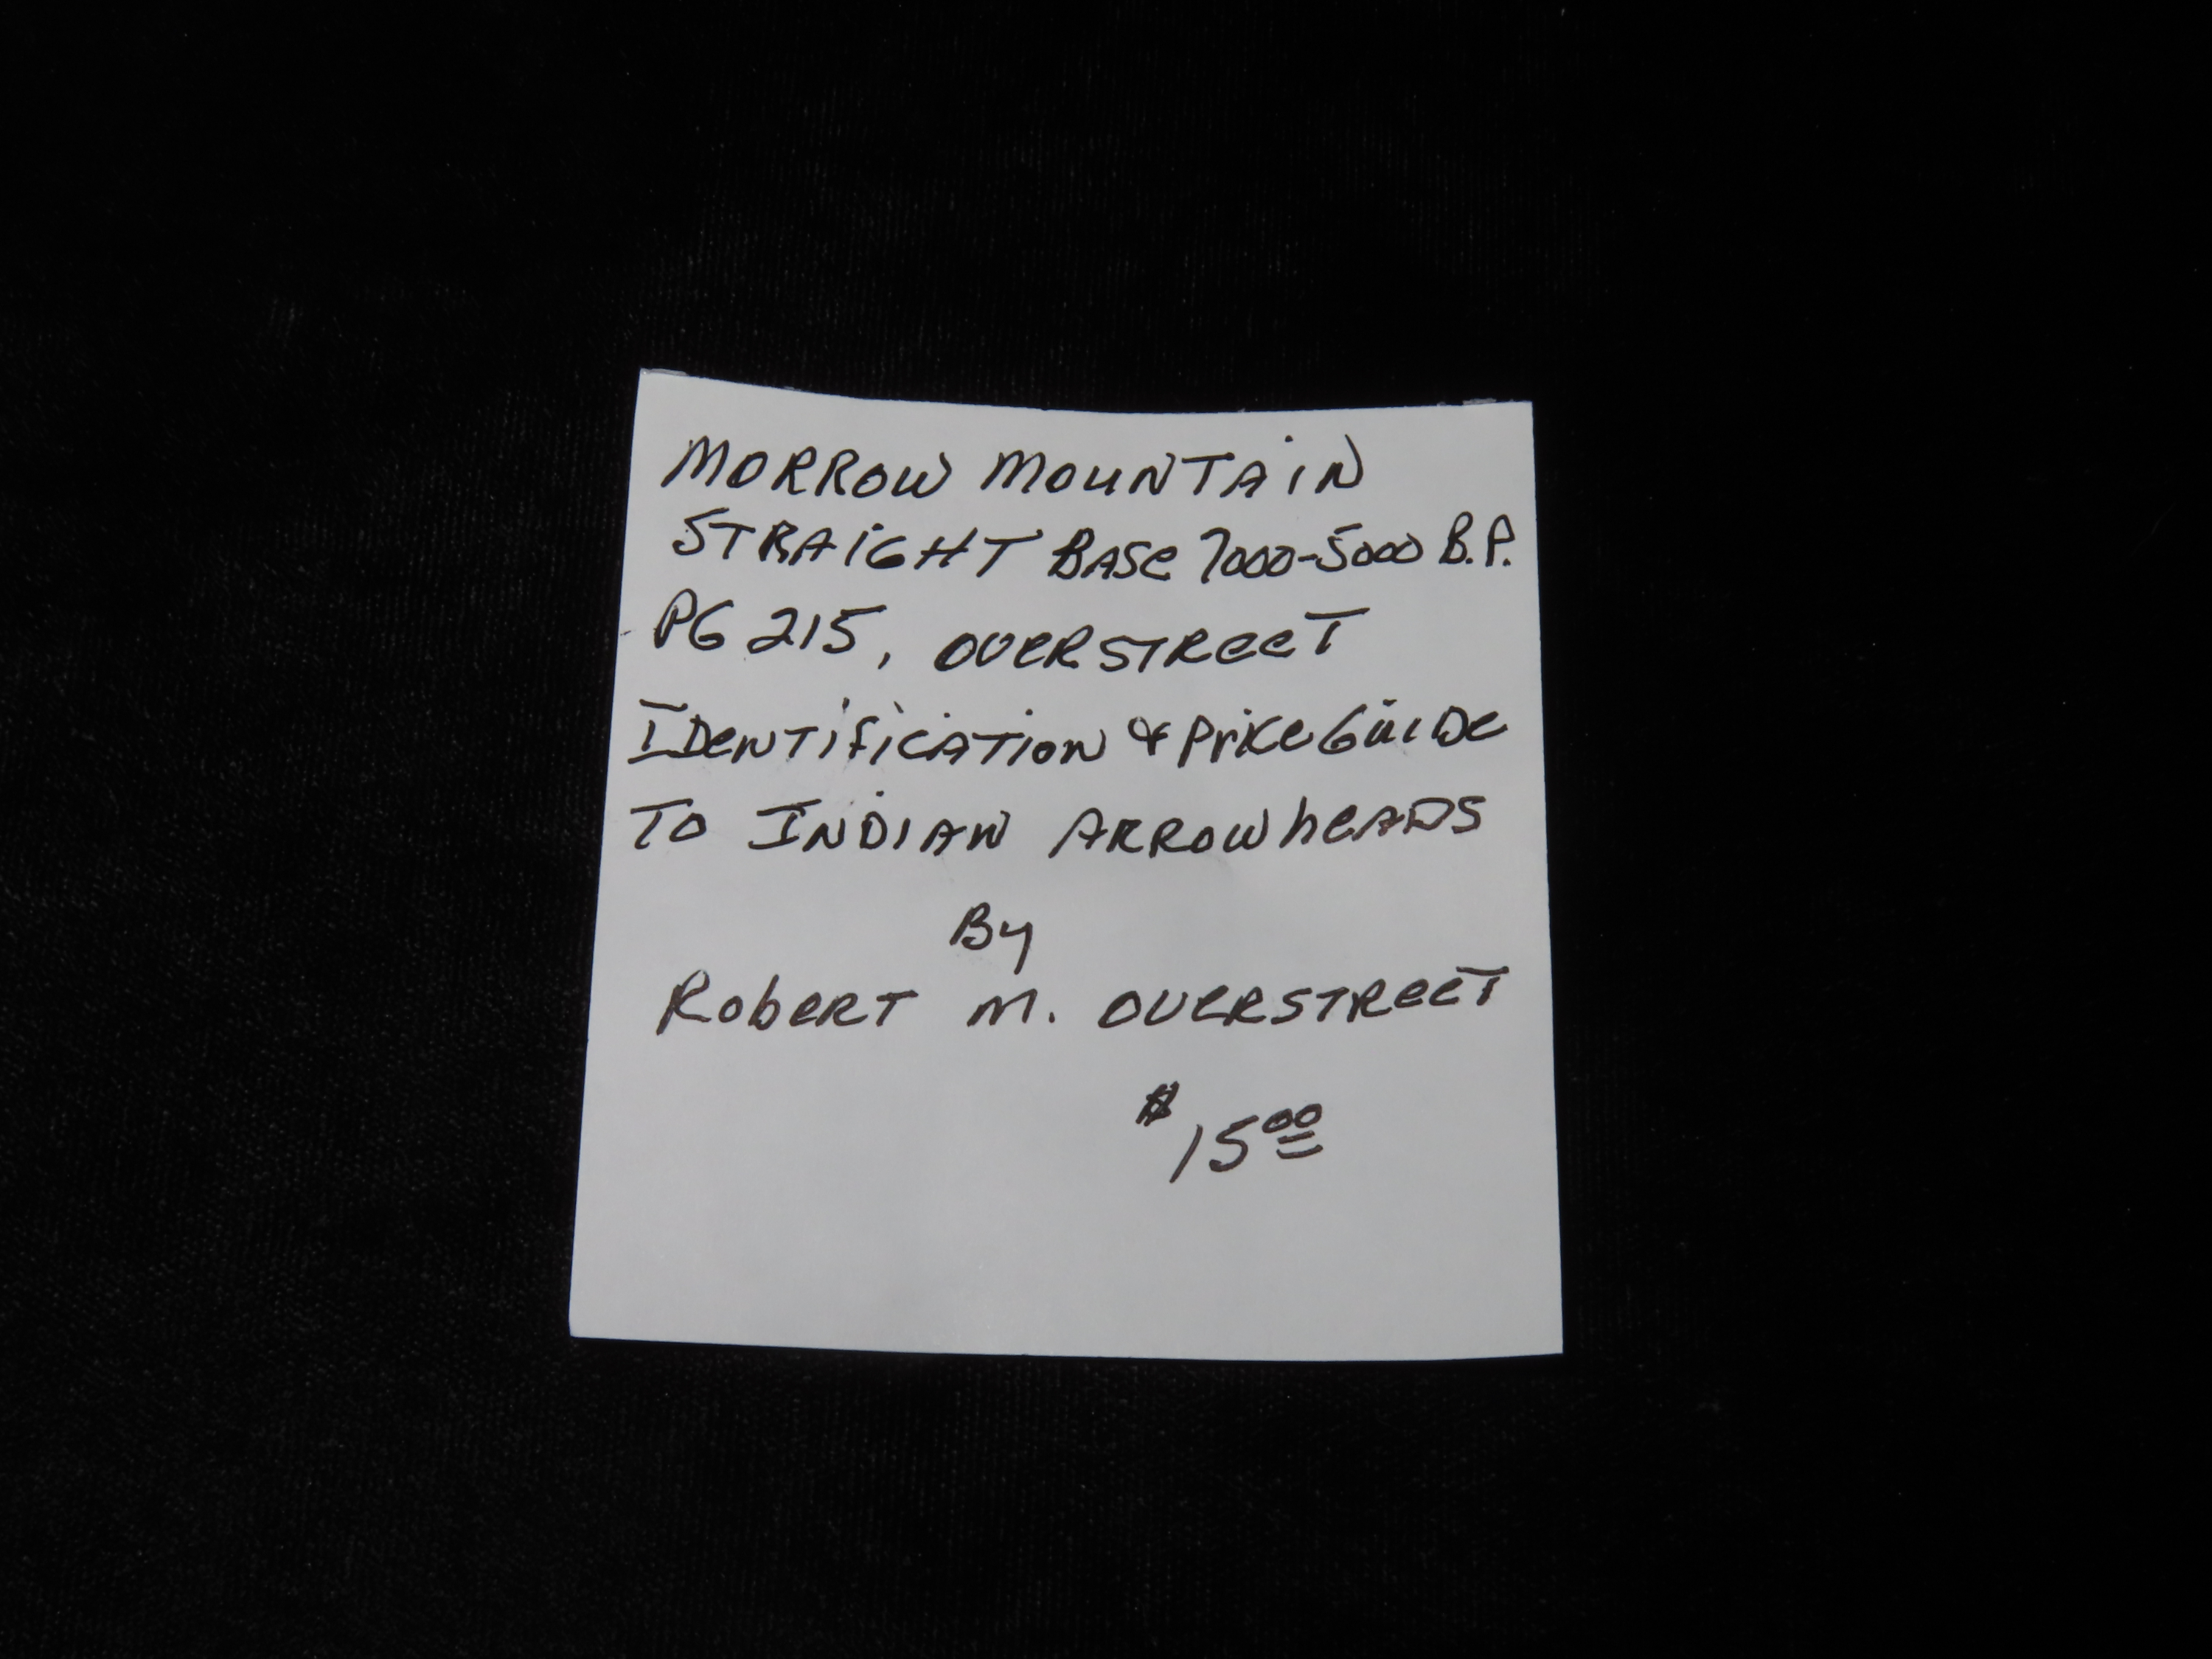 MORROW MOUNTAIN
STRAIGHT BASE 7000-5000 B.P.
PG 215, OVERSTREET
IDENTIFICATION & PRICE GUIDE
TO INDIAN ARROWHEADS
By
ROBERT M. OVERSTREET
$15.00